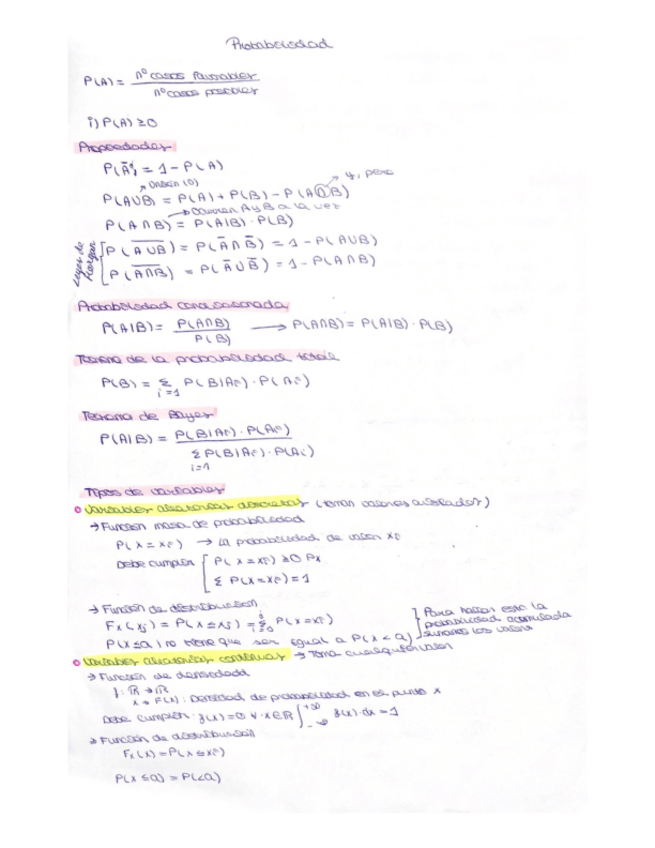 Probabilidad
P(A) = nº casos favorables / nº casos posibles
i) P(A) ≥ 0
Propiedades
P(Ā) = 1 - P(A)
→ unión (o)
→ y, pero
P(A∪B) = P(A) + P(B) - P(A∩B)
→ ocurren A y B a la vez
P(A∩B) = P(A|B) · P(B)
Leyes de Morgan
P(\overline{A∪B}) = P(Ā∩B̄) = 1 - P(A∪B)
P(\overline{A∩B}) = P(Ā∪B̄) = 1 - P(A∩B)
Probabilidad condicionada
P(A|B) = P(A∩B) / P(B) → P(A∩B) = P(A|B) · P(B)
Teorema de la probabilidad total
P(B) = Σ i=1 P(B|Ai) · P(Ai)
Teorema de Bayes
P(A|B) = P(B|Ai) · P(Ai) / Σ i=1 P(B|Ai) · P(Ai)
Tipos de variables
Variables aleatorias discretas (toman valores aislados)
→ Función masa de probabilidad
P(X = xi) → La probabilidad de valor xi
Debe cumplir P(X = xi) ≥ 0
Σ P(X = xi) = 1
→ Función de distribución
Fx(xj) = P(X ≤ xj) = Σ i=0 j P(X = xi)
Para hallar esto la probabilidad acumulada sumamos los valores
P(X ≤ a) no tiene que ser igual a P(X < a)
Variables aleatorias continuas → Toma cualquier valor
→ Función de densidad
f: ℝ → ℝ
x → f(x): Densidad de probabilidad en el punto x
Debe cumplir: f(x) = 0 ∀ x∈ℝ ∫ -∞ +∞ f(x) · dx = 1
→ Función de distribución
Fx(x) = P(X ≤ xi)
P(X ≤ a) = P(<a)